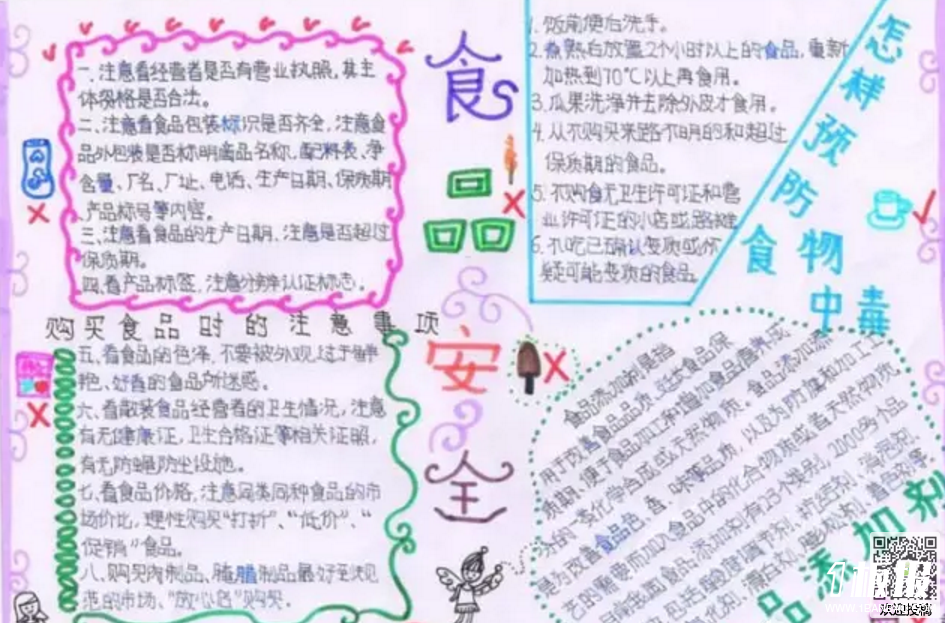 一、注意看经营者是否有营业执照，其主
体资格是否合法。
二、注意看食品包装标识是否齐全，注意食
品外包装是否标明商品名称，配料表、净
含量、厂名、厂址、电话、生产日期、保质期
产品标号等内容。
三、注意看食品的生产日期、注意是否超过
保质期。
四、看产品标签，注意分辨认证标志。
购买食品时的注意事项
五、看食品的色泽，不要被外观过于鲜
艳、好看的食品所迷惑。
六、看散装食品经营者的卫生情况，注意
有无健康证，卫生合格证等相关证照，
有无防蝇防尘设施。
七、看食品价格，注意同类同种食品的市
场价比，理性购买“打折”、“低价”、“
促销”食品。
八、购买肉制品、腌腊制品最好至规
范的市场、“放心店”购买。
食
品
安
全
1. 饭前便后洗手。
2. 煮熟后放置2个小时以上的食品，重新
加热到70℃以上再食用。
3. 瓜果洗净并去除外皮才食用。
4. 从不购买来路不明的和超过
保质期的食品。
5. 不购食无卫生许可证和营
业许可证的小店或路摊
6. 不吃已确认变质或怀
疑可能变质的食品
怎样预防食物中毒
食品添加剂是指
用于改善食品品质、延长食品保
质期、便于食品加工和增加食品营养成
分的一类化学合成或天然物质。食品添加剂
是为改善食品色、香、味等品质，以及为防腐和加工工
艺的需要而加入食品中的化合物质或者天然物质
添加剂有23个类别，2000多个品
抗结剂、消泡剂、
漂白剂、膨松剂、着色剂等
添加剂